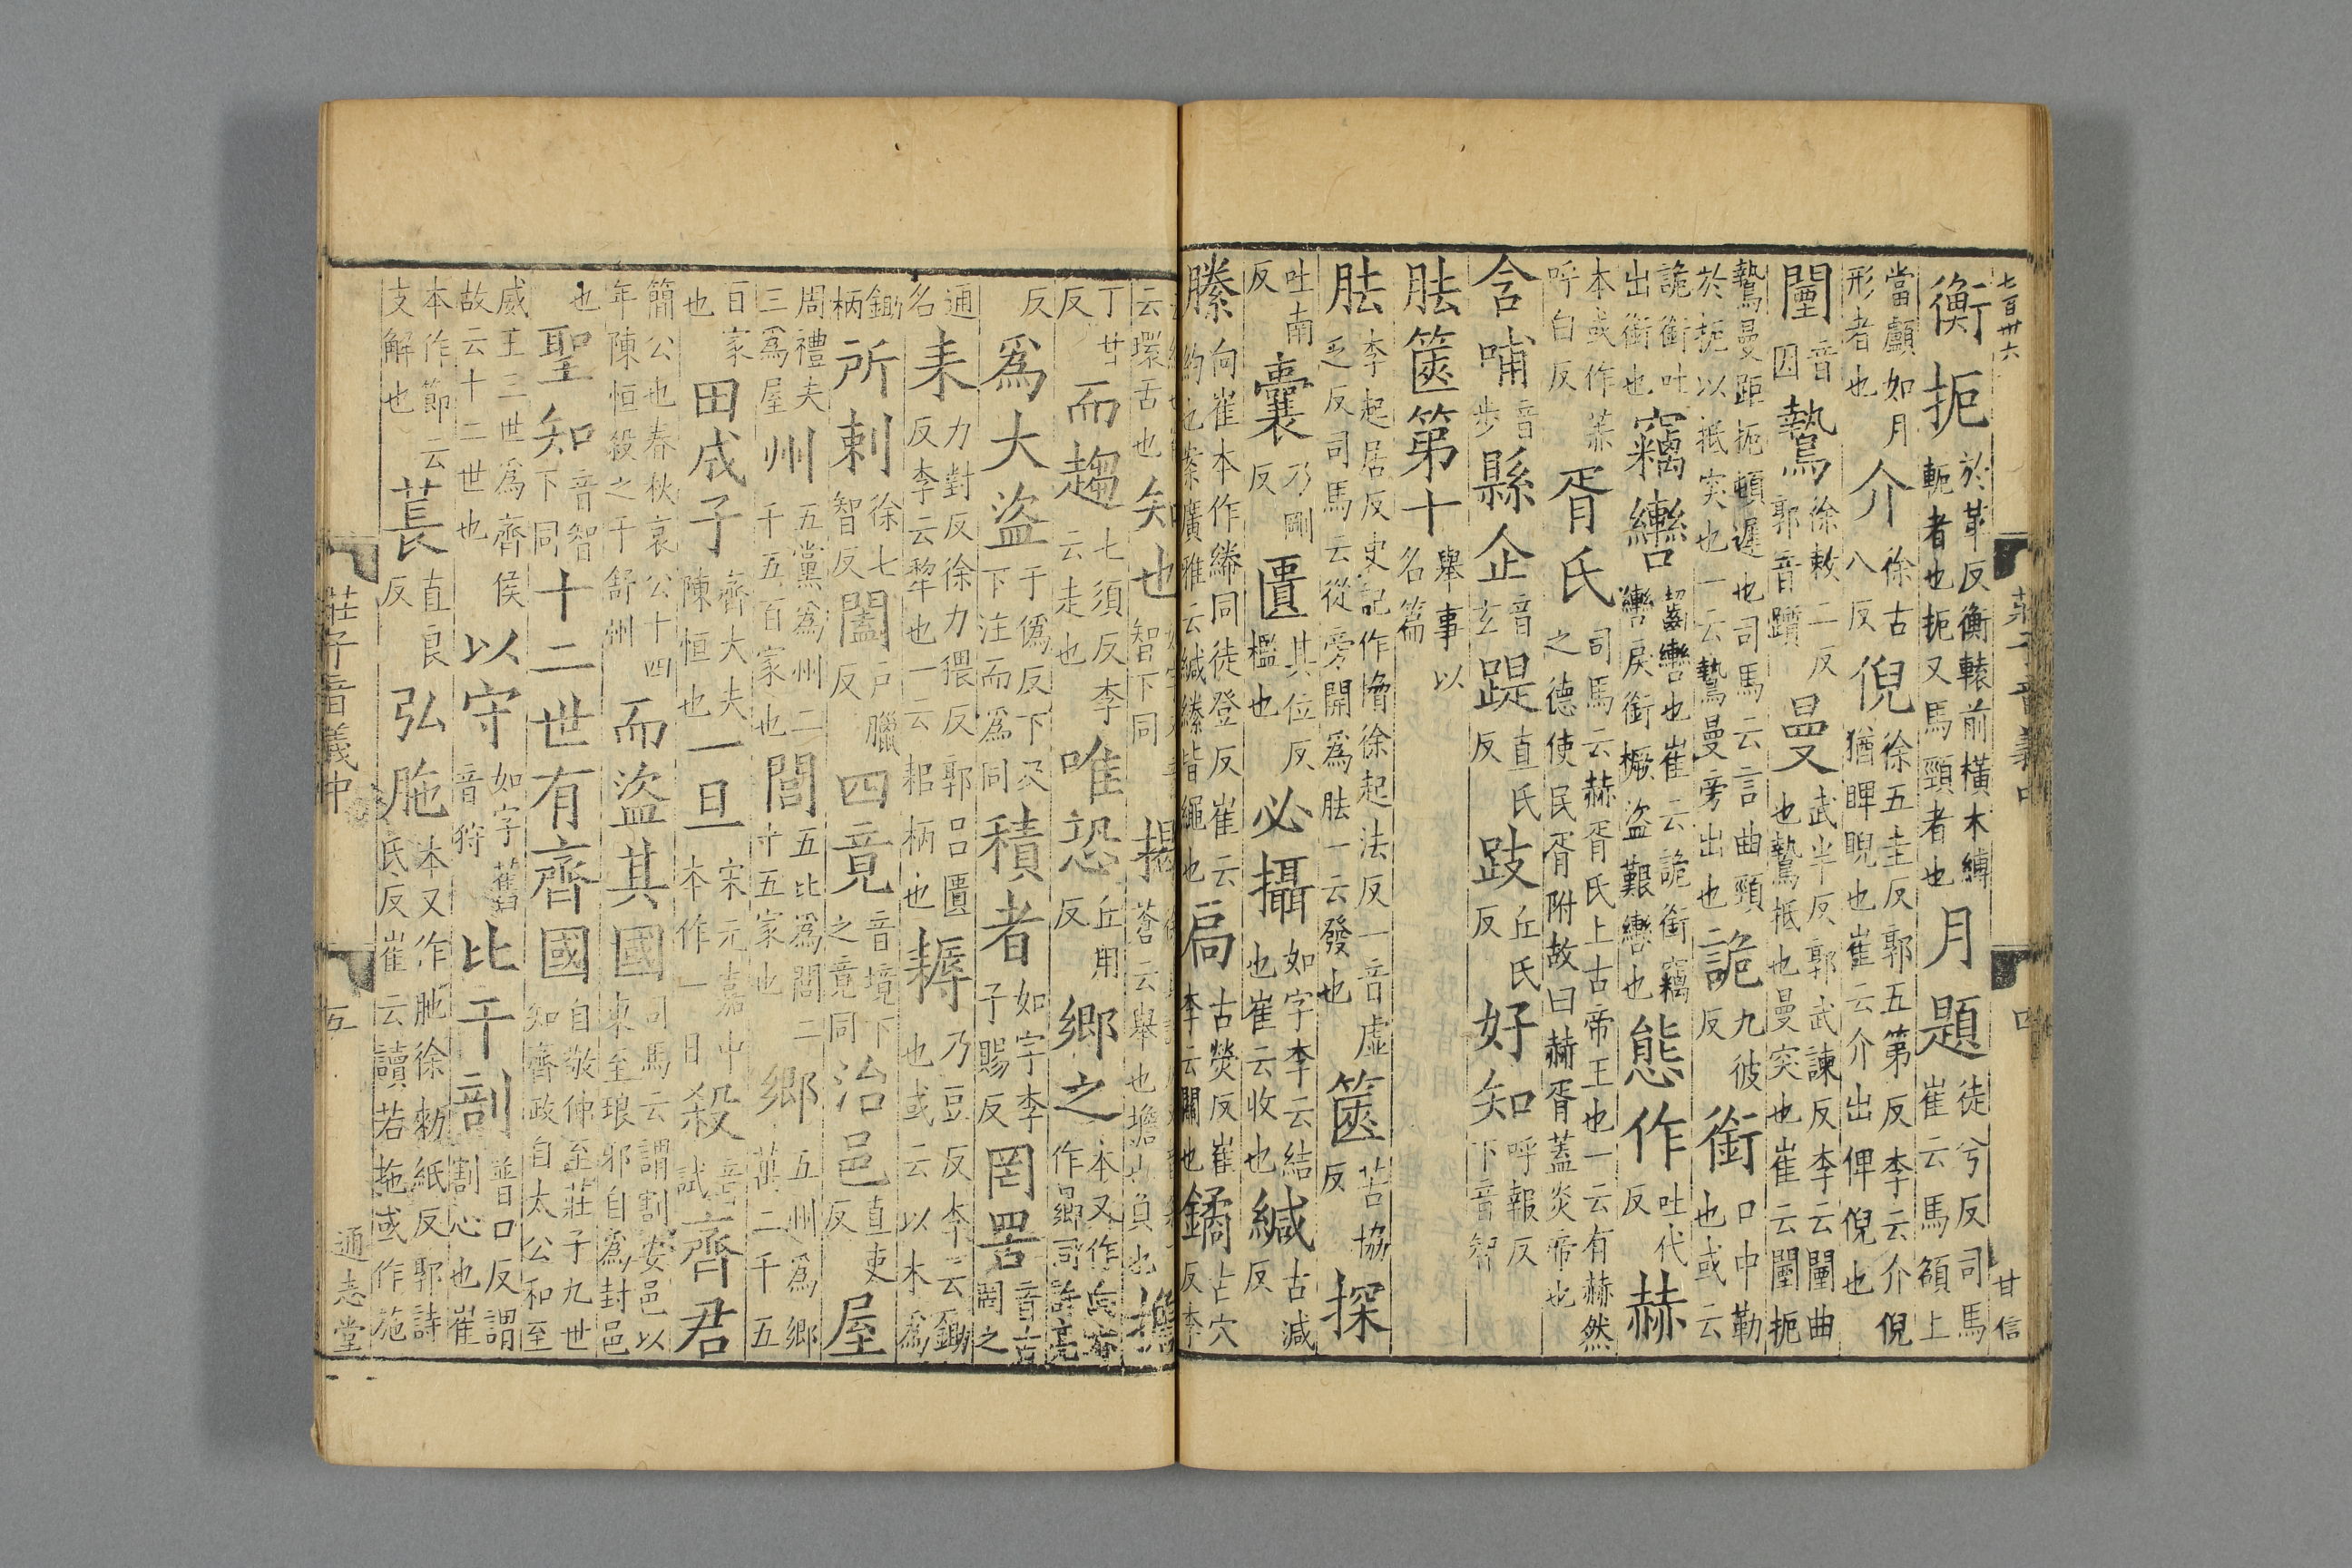 七百卅六 莊子音義中 四 甘信
衡扼於革反衡轅前橫木縛軛者也扼又馬頸者也月題徒兮反司馬崔云馬頟上
當顱如月形者也介徐古八反倪徐五圭反郭五第反李云介倪猶睥睨也崔云介出俾倪也
闉音因鷙徐敕二反郭音躓曼武半反郭武諫反李云闉曲也鷙抵也曼突也崔云闉扼
鷙曼距扼頓遲也司馬云言曲頸於扼以抵突也一云鷙曼旁出也詭九彼反銜口中勒也或云
詭銜吐出銜也竊轡齧轡也崔云詭銜竊轡戾銜橛盜艱轡也態作吐代反赫
本或作呼白反胥氏司馬云赫胥氏上古帝王也一云有赫然之德使民胥附故曰赫胥蓋炎帝也
含哺音步縣企音玄踶直氏反跂丘氏反好知呼報反下音智
胠篋第十舉事以名篇
胠李起居反史記作徐起法反一音虛乏反司馬云從旁開爲胠一云發也篋苦協反探
吐南反囊乃剛反匱其位反檻也必攝如字李云結也崔云收也緘古減反
縢向崔本作同徒登反崔云約也案廣雅云緘縢皆繩也扃古熒反崔李云關也鐍古穴反李
云環舌也知也智下同揭蒼云舉也擔也負也擔
丁甘反而趨七須反李云走也唯恐丘用反鄉之本又作向亦作曏同許亮
反爲大盜于僞反下及下注而爲同積者如字李子賜反罔罟音古罔之
通名耒力對反徐力猥反郭呂匱反李云犂也一云耜柄也耨乃豆反李云鋤也或云以木爲
鋤柄所剌徐七智反闔戶臘反四竟音境下之竟同治邑直吏反屋
周禮夫三爲屋州五黨爲州二千五百家也閭五比爲閭二十五家也鄉五州爲鄉萬二千五
百家也田成子齊大夫陳恒也一旦宋元嘉中本作一日殺音試齊君
簡公也春秋哀公十四年陳恒殺之于舒州而盜其國司馬云謂割安邑以東至琅邪自爲封邑
也聖知音智下同十二世有齊國自敬仲至莊子九世知齊政自太公和至
威王三世爲齊侯故云十二世也以守如字舊音狩比干剖普口反謂割心也崔
本作節云支解也萇直良反弘胣本又作肔徐勑紙反郭詩氏反崔云讀若拖或作施
莊子音義中 五 通志堂